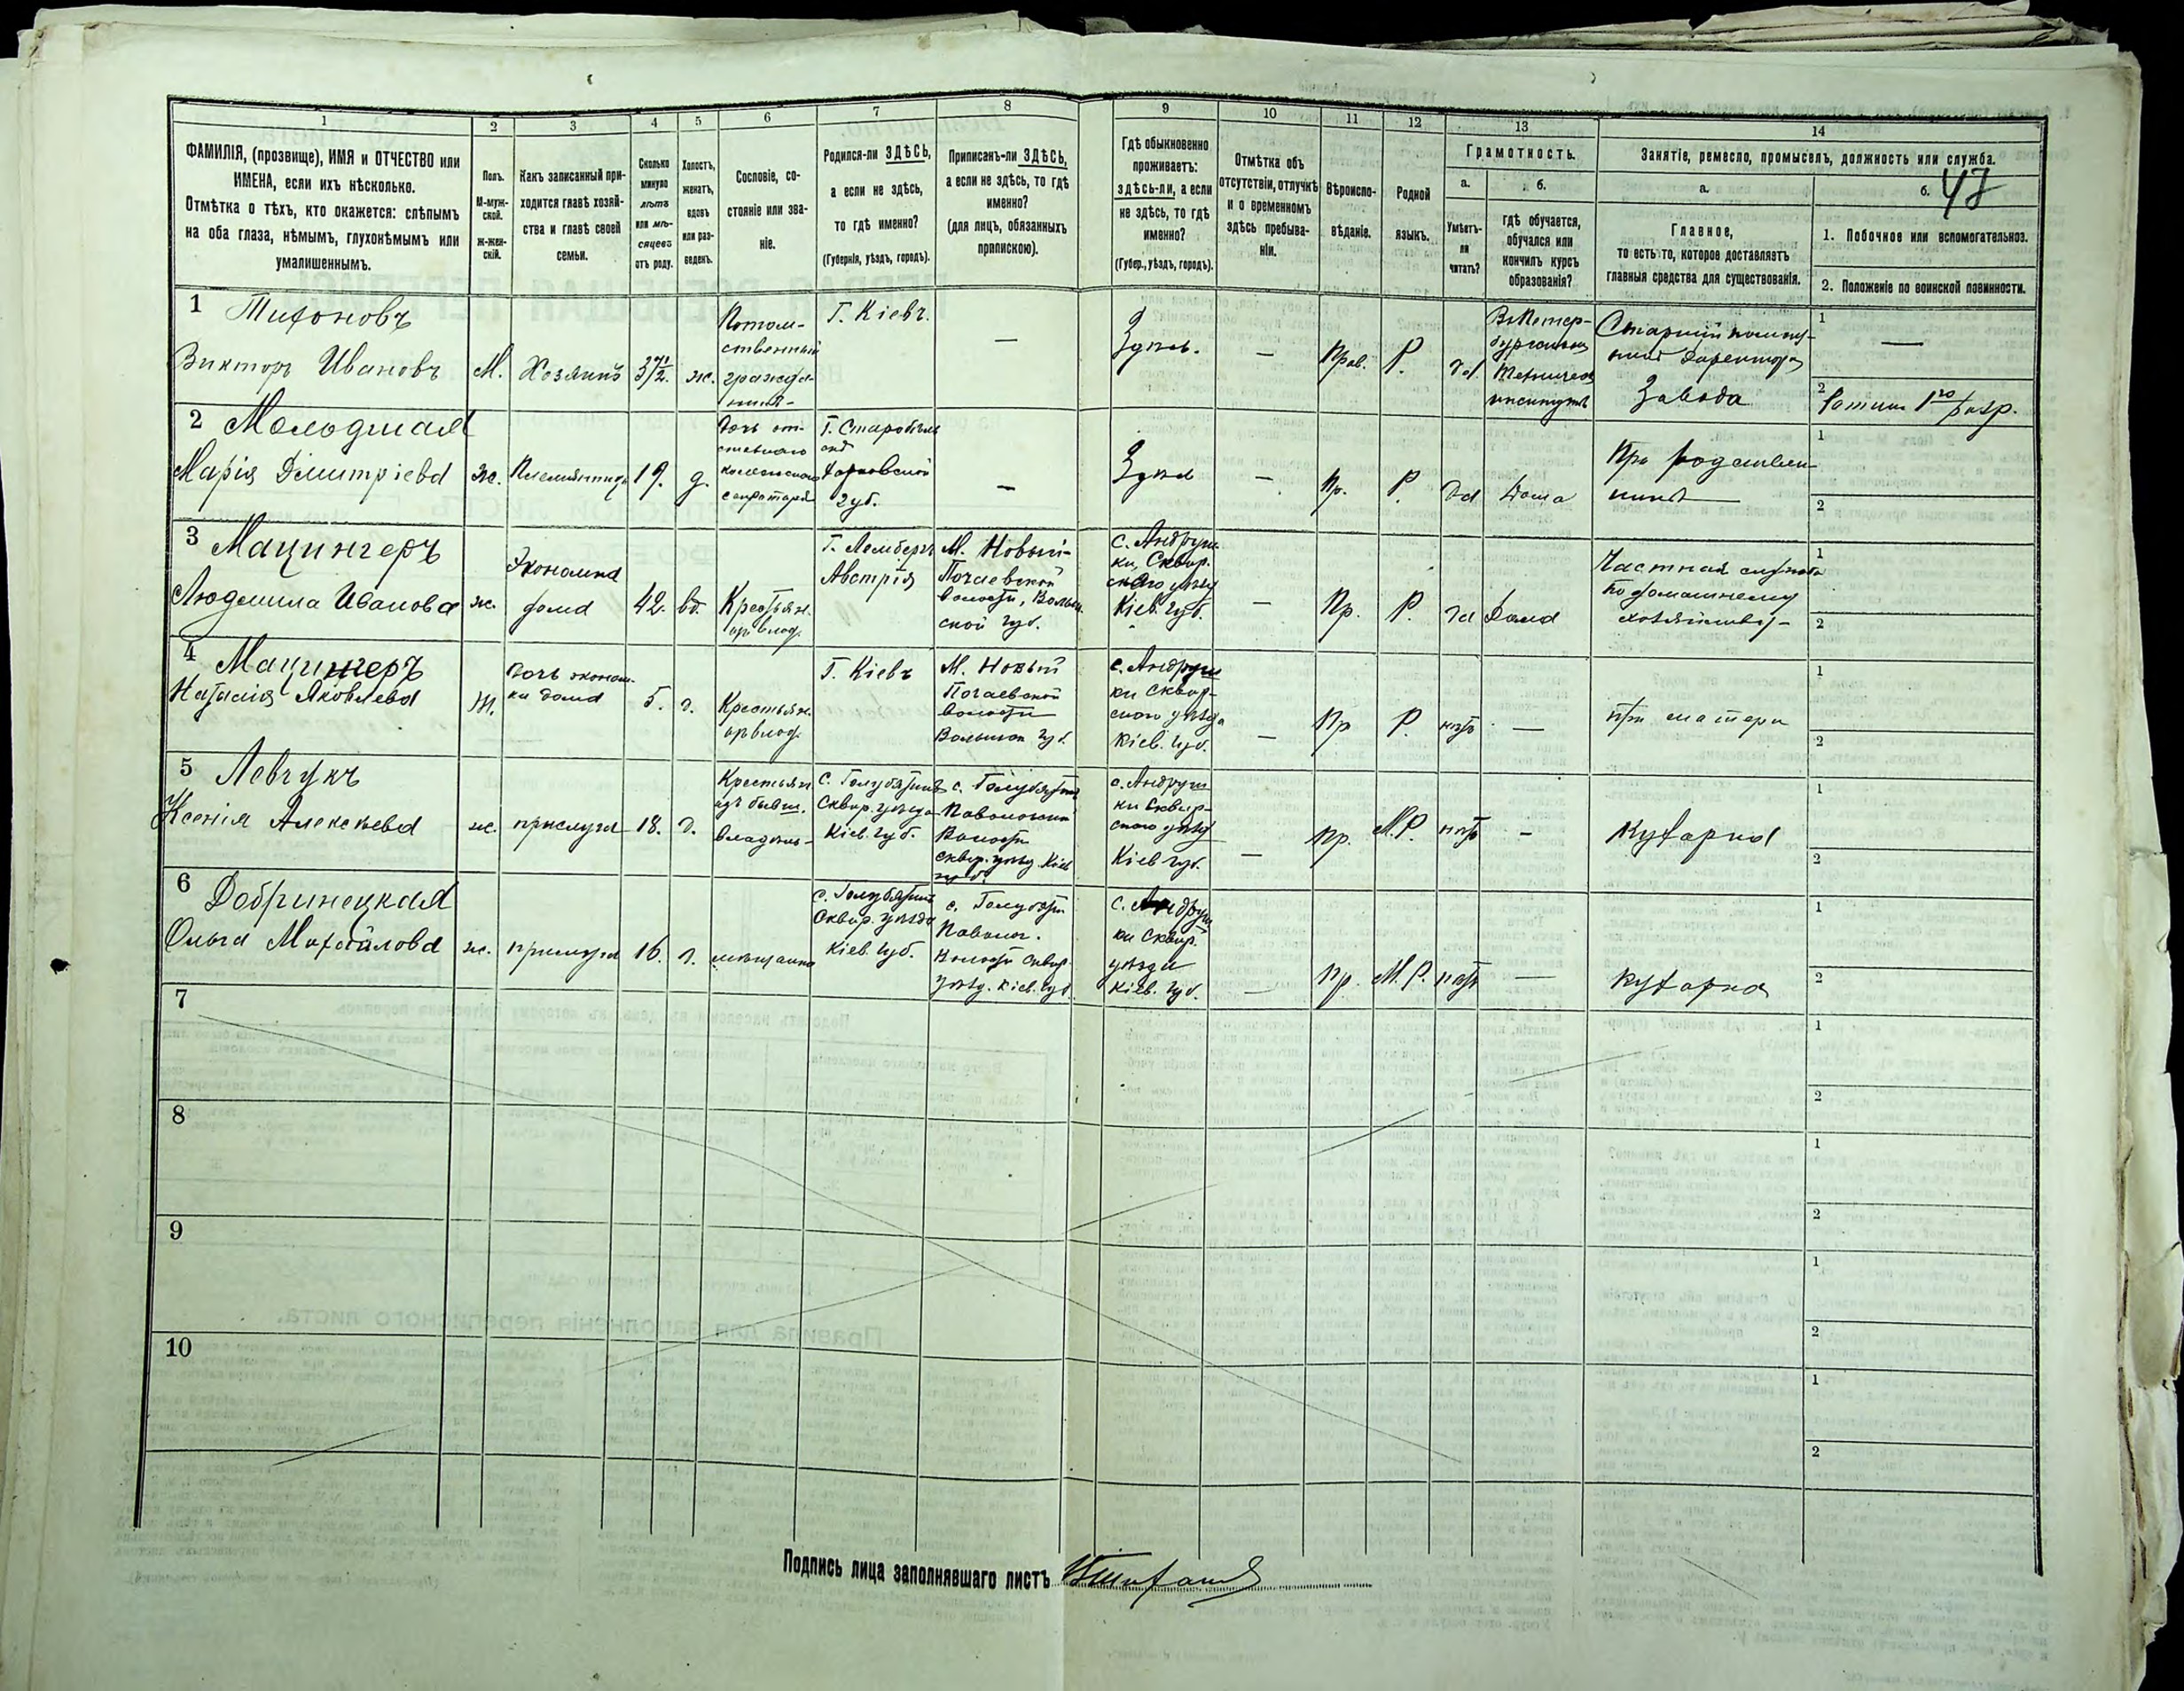 1
2
3
4
5
6
7
8
9
10
11
12
13
14
ФАМИЛІЯ, (прозвище), ИМЯ и ОТЧЕСТВО или
ИМЕНА, если ихъ нѣсколько.
Отмѣтка о тѣхъ, кто окажется: слѣпымъ
на оба глаза, нѣмымъ, глухонѣмымъ или
умалишеннымъ.
Полъ.
М-муж-
ской.
ж-жен-
скій.
Какъ записанный при-
ходится главѣ хозяй-
ства и главѣ своей
семьи.
Сколько
минуло
лѣтъ
или мѣ-
сяцевъ
отъ роду.
Холостъ,
женатъ,
вдовъ
или раз-
веденъ.
Сословіе, со-
стояніе или зва-
ніе.
Родился-ли ЗДѢСЬ,
а если не здѣсь,
то гдѣ именно?
(Губернія, уѣздъ, городъ).
Приписанъ-ли ЗДѢСЬ,
а если не здѣсь, то гдѣ
именно?
(для лицъ, обязанныхъ
припискою).
Гдѣ обыкновенно
проживаетъ:
здѣсь-ли, а если
не здѣсь, то гдѣ
именно?
(Губер., уѣздъ, городъ).
Отмѣтка объ
отсутствіи, отлучкѣ
и о временномъ
здѣсь пребыва-
ніи.
Вѣроиспо-
вѣданіе.
Родной
языкъ.
Грамотность.
а.
Умѣетъ-
ли
читать?
б.
гдѣ обучается,
обучался или
кончилъ курсъ
образованія?
Занятіе, ремесло, промыселъ, должность или служба.
а.
Главное,
то есть то, которое доставляетъ
главныя средства для существованія.
б. 47
1. Побочное или вспомогательное.
2. Положеніе по воинской повинности.
1 Тихоновъ
Викторъ Ивановъ
М.
Хозяинъ
37 1/2.
ж.
Потом-
ственный
гражда-
нинъ
Г. Кіевъ.
—
Здѣсь.
—
Прав.
Р.
да
Въ Петер-
бургском
Техническ
институтѣ
Старшій помощ-
никъ директора
Завода
1
—
2
Ратник 1го разр.
2 Молодшая
Марія Димитріева
ж.
Племянница
19.
д.
Дочь от-
ставнаго
коллежскаго
секретаря
Г. Старобѣльскъ
Харковской
губ.
—
Здѣсь
—
Пр.
Р.
да
Дома
При родствен-
никѣ
1
2
3 Мацингеръ
Людмила Иванова
ж.
Экономка
дома
42.
вд.
Крестьян.
Г. Лембергъ
Австрія
М. Новый-
Почаевской
волости, Волын-
ской губ.
С. Андруш-
ки, Сквир-
скаго уѣзд
Кіев. губ.
—
Пр.
Р.
да
Дома
Частная служба
по домашнему
хозяйству
1
2
4 Мацингеръ
Наталія Яковлева
Ж.
Дочь эконом-
ки дома
5.
д.
Крестьян.
Г. Кіевъ
М. Новый
Почаевской
волости
Волынск губ.
с. Андруш
ки Сквир-
скаго уѣзда
Кіев. губ.
—
Пр
Р.
нѣтъ
—
При матери
1
2
5 Левчукъ
Ксенія Алексѣева
ж.
прислуга
18.
д.
Крестьян
изъ бывш.
владѣль-
С. Голубятинъ
Сквир. уѣзда
Кіев. губ.
с. Голубятинъ
Паволочской
Волости
Сквир. уѣзд. Кіев
губ.
с. Андруш
ки Сквир-
скаго уѣзд
Кіев губ.
—
Пр.
М.Р.
нѣтъ
—
Кухарка
1
2
6 Добринецкая
Ольга Михайлова
ж.
прислуга
16.
д.
мѣщанка
с. Голубятинъ
Сквир. уѣзда
Кіев. губ.
с. Голубят
Паволоч.
Волости Сквир.
уѣзд. Кіев. губ.
С. Андруш
ки Сквир.
уѣзда
Кіев. губ.
—
Пр.
М.Р.
нѣтъ
—
Кухарка
1
2
7
1
2
8
1
2
9
1
2
10
1
2
Подпись лица заполнявшаго листъ